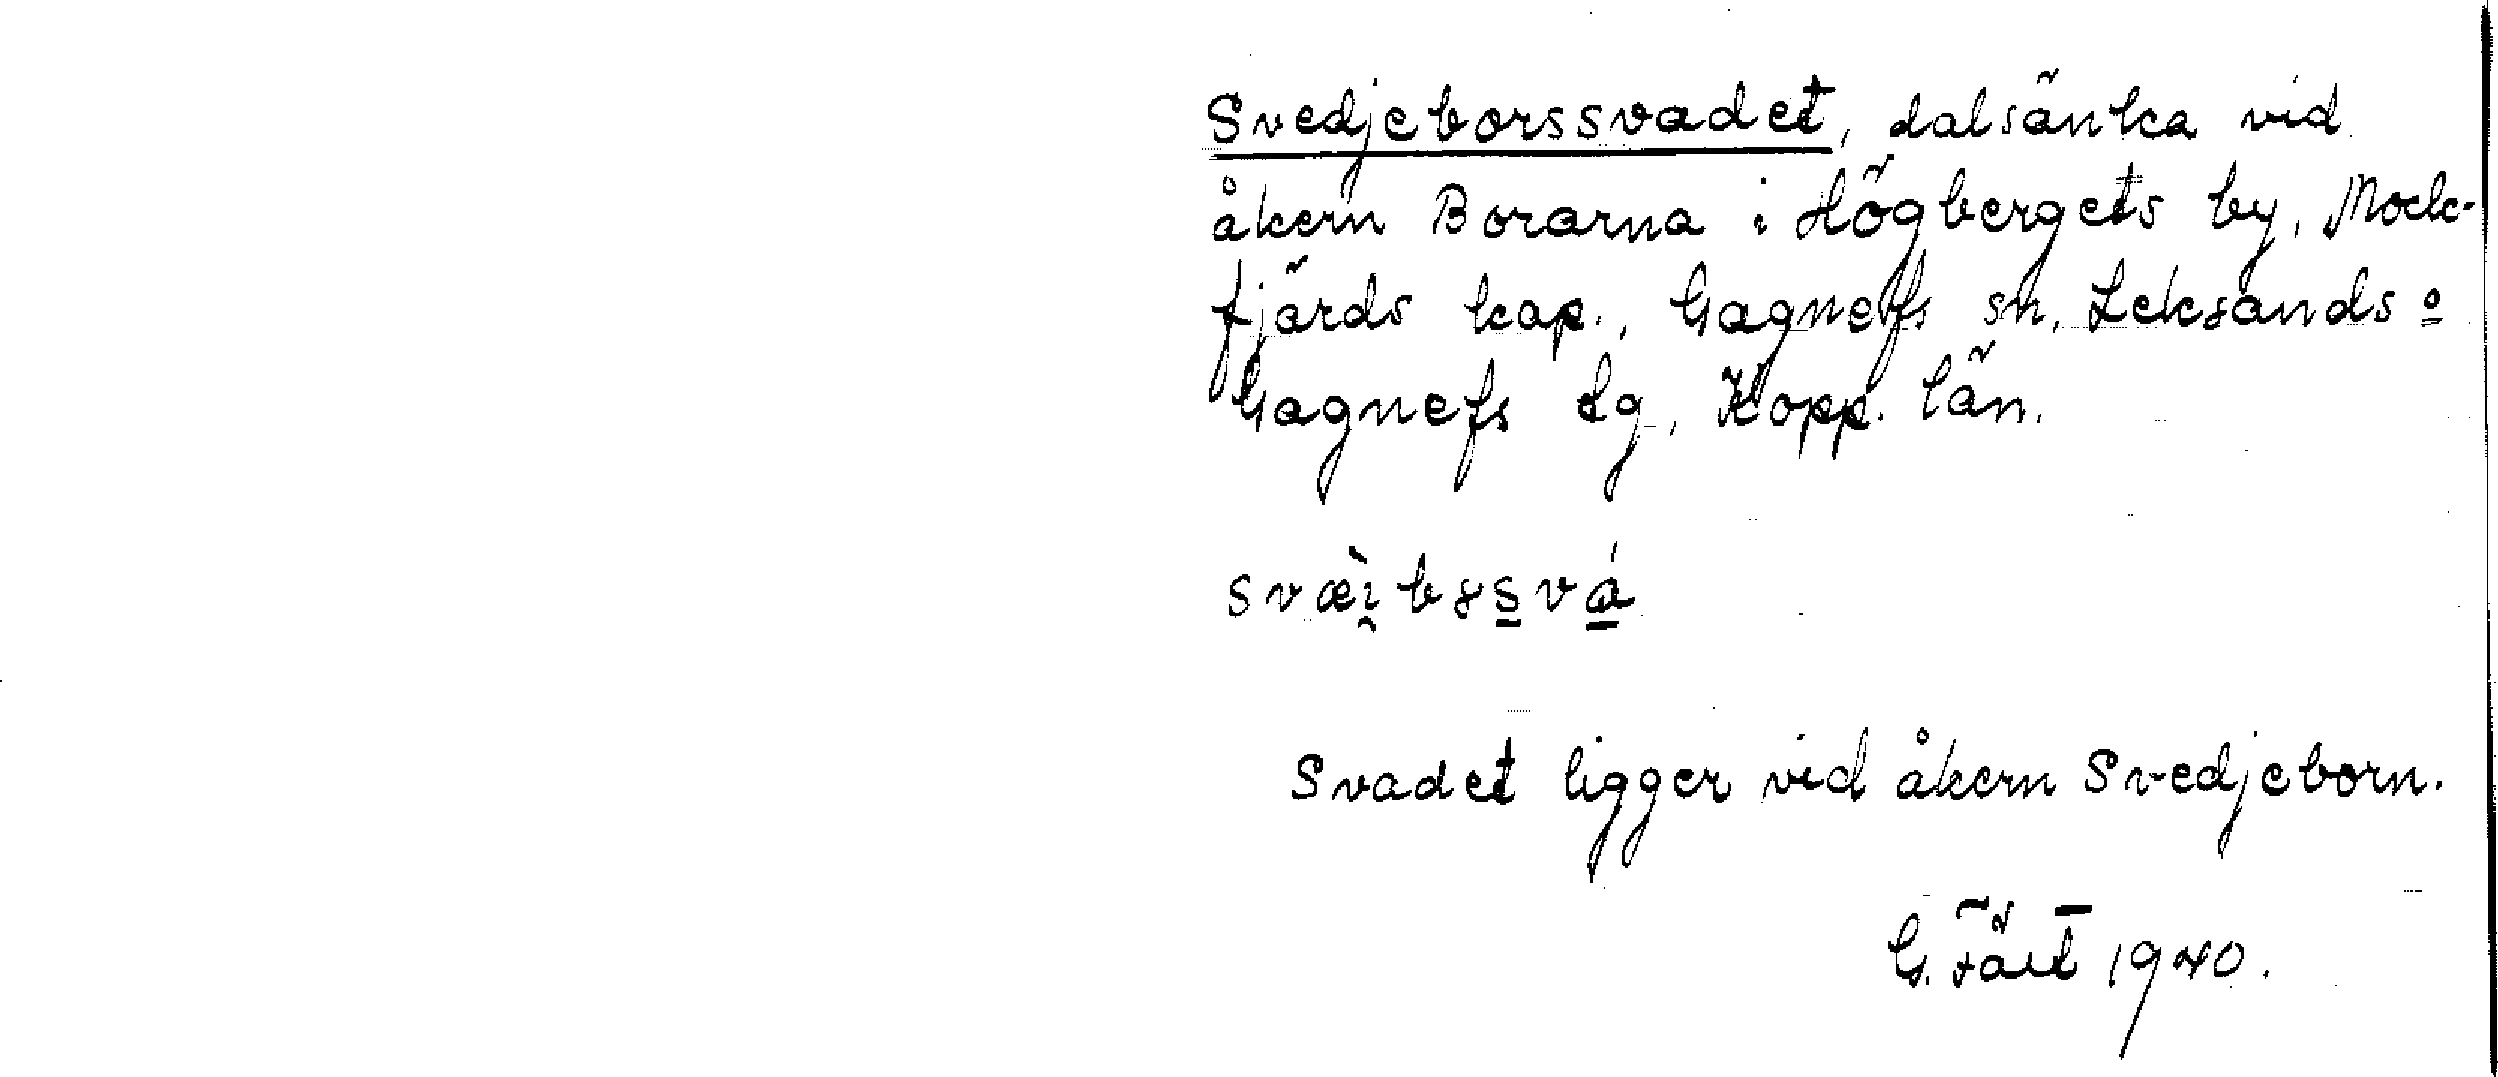 Svedjeborssvadet, dalsänka vid
åkern Borarna i Högbergets by, Mock-
fjärds kap., Gagnefs sn, Leksands o
Gagnefs tg, Kopp. län.
svæ̀i̯bɤs̲vá̲
Svadet ligger vid åkern Svedjeborn.
G. Fält 1940.